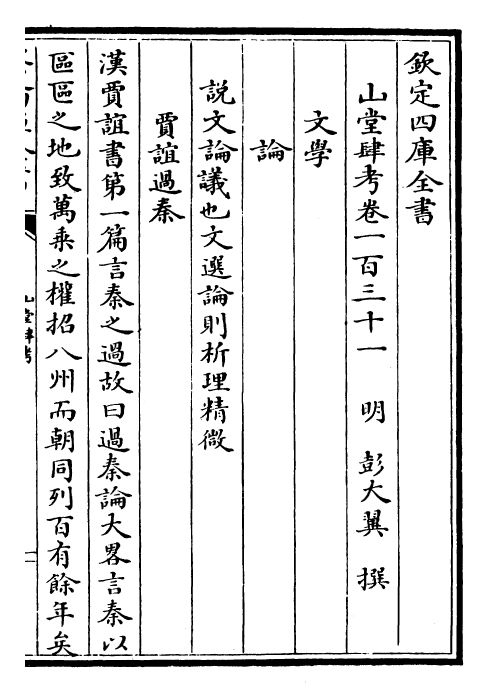 欽定四庫全書
山堂肆考卷一百三十一　明　彭大翼　撰
文學
論
説文論議也文選論則析理精微
賈誼過秦
漢賈誼書第一篇言秦之過故曰過秦論大畧言秦以
區區之地致萬乘之權招八州而朝同列百有餘年矣
山堂肆考